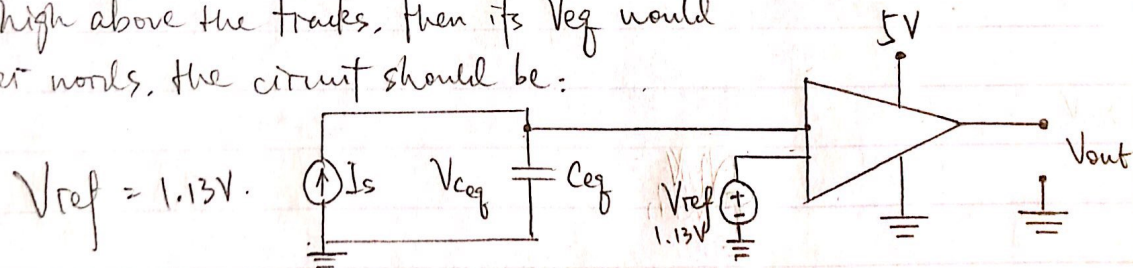 high above the tracks, then its Veq would
words, the circuit should be:
5V
Vref = 1.13V.
Is
VCeq
Ceq
Vref
1.13V
+
-
Vout